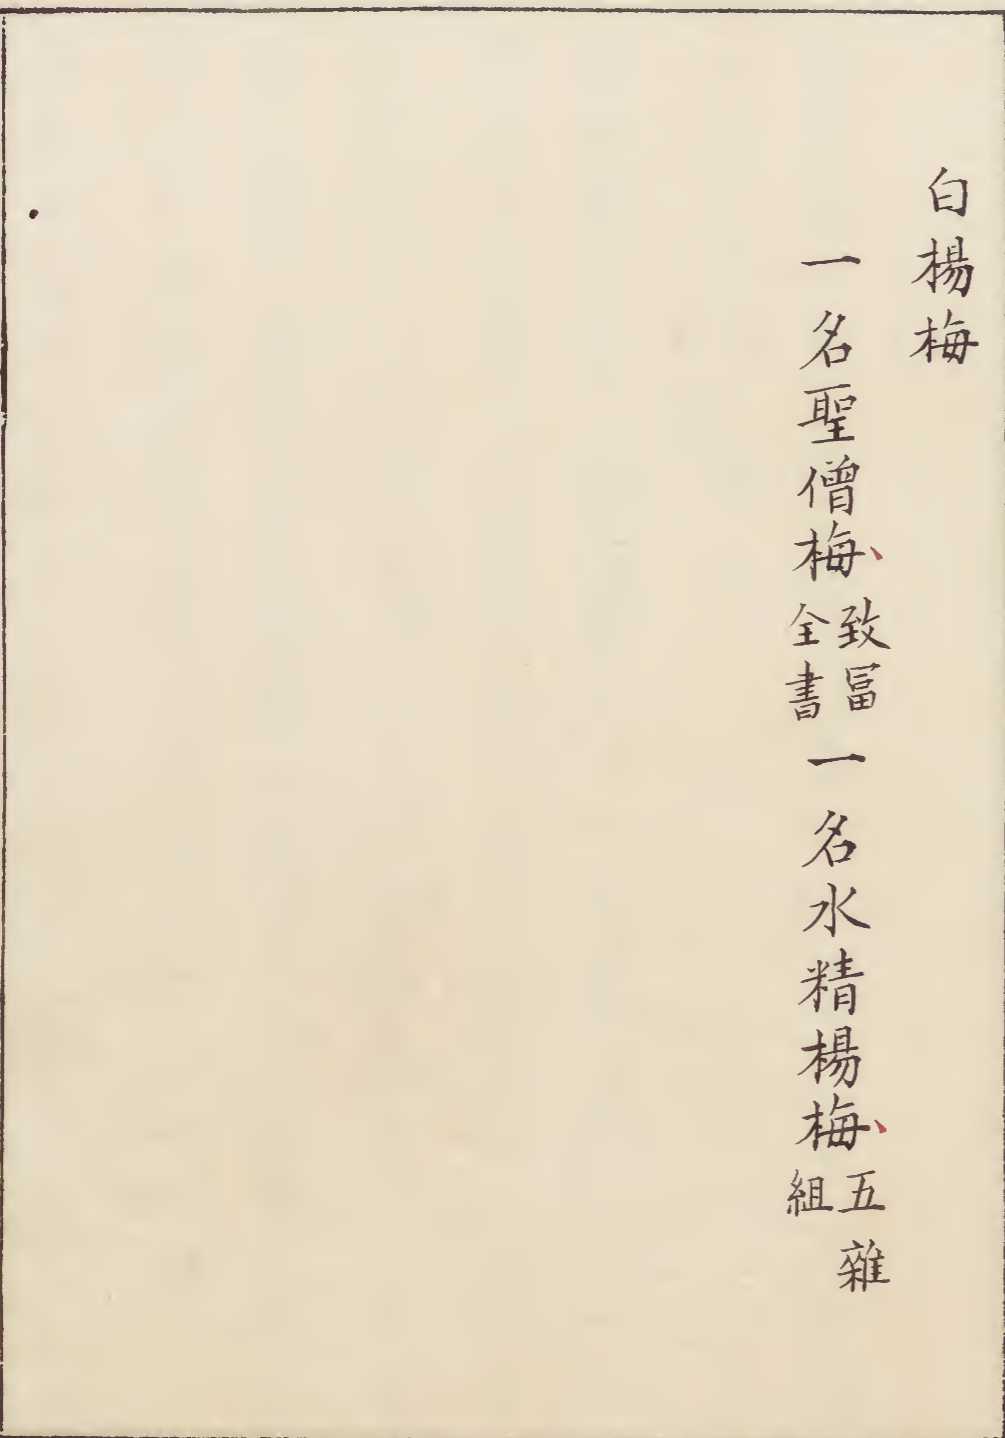 白楊梅
一名聖僧梅、致冨全書一名水精楊梅、五雜組